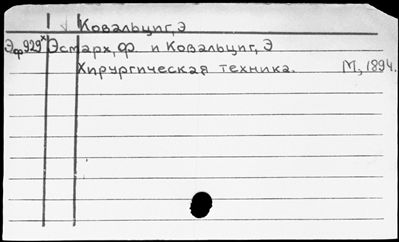 Ковальциг, Э
Эф929х Эсмарх, Ф и Ковальциг, Э
Хирургическая техника. М, 1894.